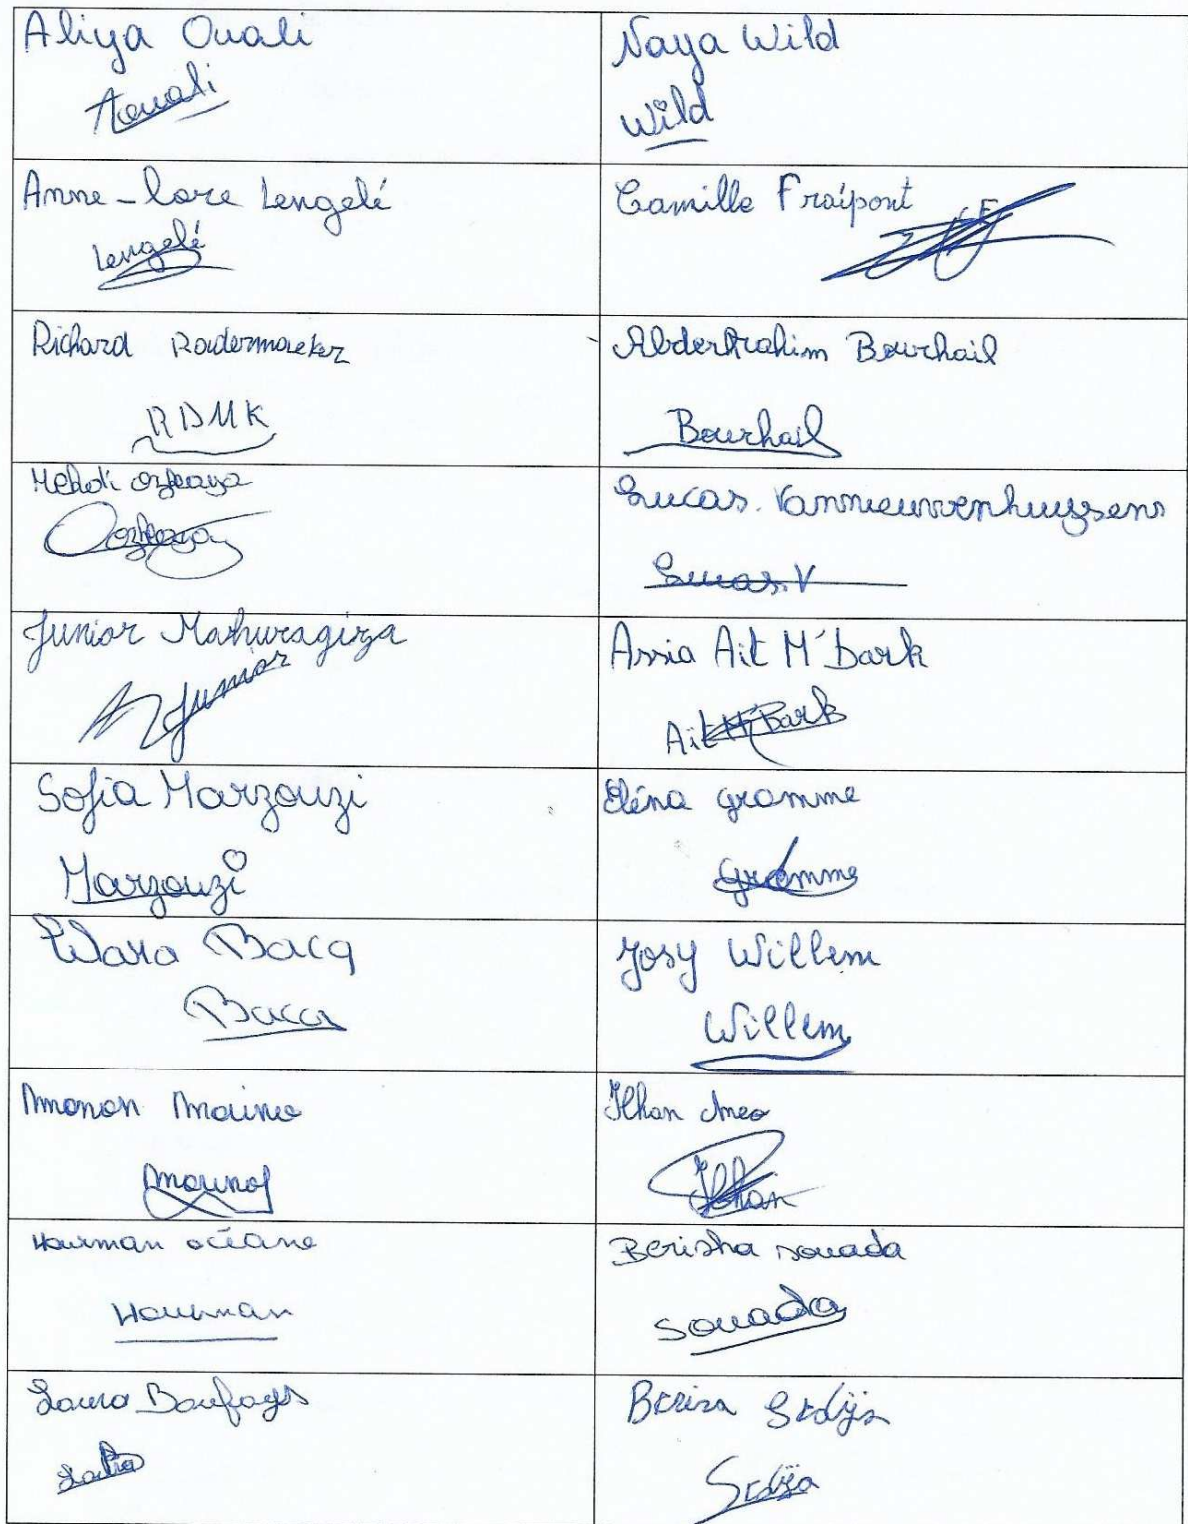 Aliya Ouali
Aouali
Naya Wild
Wild
Anne-lore Lengelé
Lengelé
Camille Fraipont
CF
Richard Radermaeker
RDMK
Abderrahim Bourhail
Bourhail
Mehdi Ozkaya
Ozkaya
Lucas. Vannieuwenhuysens
Lucas.V
Junior Mahuragiza
Junior
Assia Ait M'bark
Ait M'Bark
Sofia Marzouzi
Marzouzi
Eléna gramme
gramme
Bacq
Bacq
Josy Willem
Willem
Manon
Ilhan
Ilhan
Hourman océane
Hourman
Berisha souada
souada
Laura Baufays